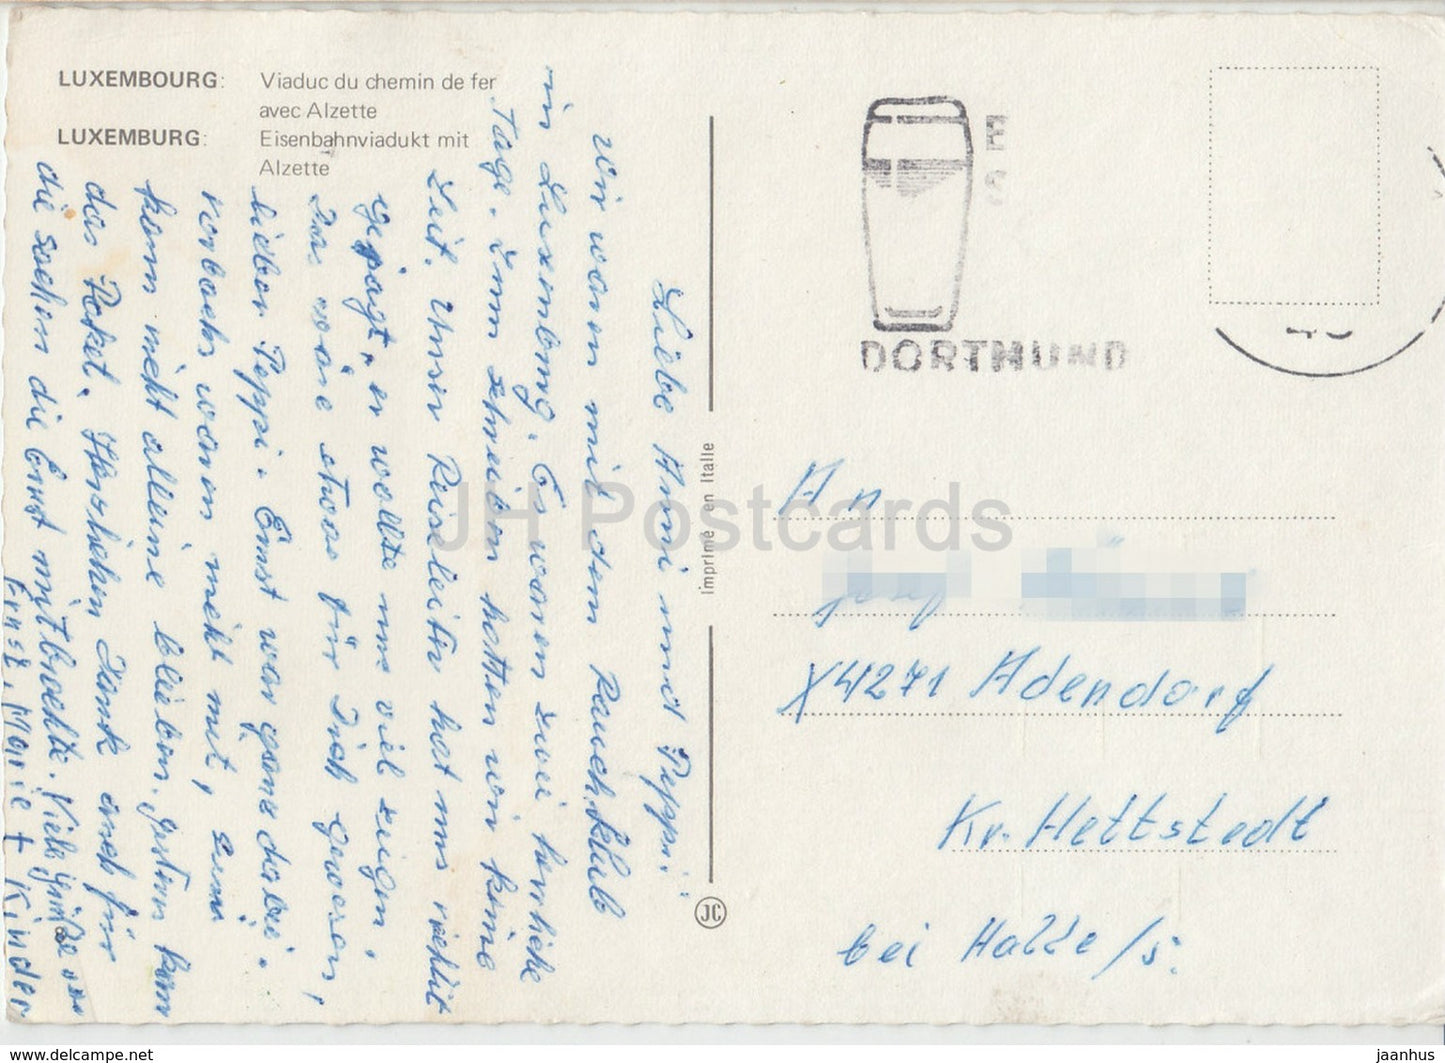 LUXEMBOURG: Viaduc du chemin de fer
avec Alzette
LUXEMBURG: Eisenbahnviadukt mit
Alzette
Liebe Anni und Peppi!
Wir waren mit dem Rauchklub
in Luxemburg. Es waren zwei herrliche
Tage. Zum schreiben hatten wir keine
Zeit. Unser Reiseleiter hat uns richtig
gejagt, er wollte uns viel zeigen.
Das wäre etwas für Dich gewesen,
lieber Peppi. Ernst war ganz dabei.
waren nicht mit,
kann nicht alleine bleiben. Gestern kam
das Paket. Herzlichen Dank auch für
die sachen die Ernst mitbrachte. Viele Grüße von
Ernst, Marie + Kinder
Imprimé en Italie
JC
E
S
DORTMUND
An
Josef
X4271 Adendorf
Kr. Hettstedt
bei Halle/S.
JH Postcards
https://www.delcampe.net
jaanhus